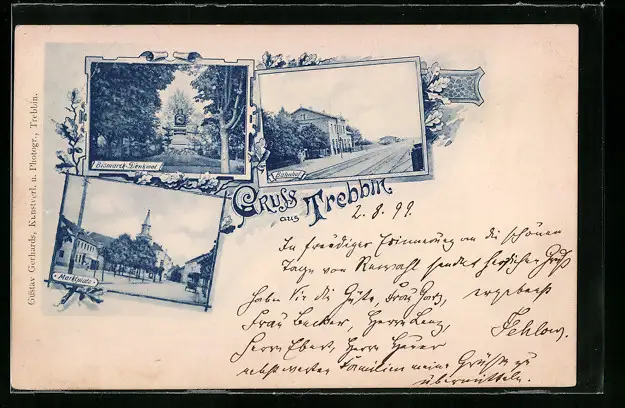 Gustav Gerhards, Kunstverl. u. Photogr., Trebbin.
Bismarck-Denkmal
Bahnhof
Gruss
aus Trebbin
Marktplatz
2. 8. 99.
In freudiger Erinnerung an die schönen
Tage von sendet herzlichen Gruß
haben Sie die Güte, Frau ergebenst
Frau Becker, Herrn Lenz,
Herrn Ebert, Herrn
nebst werten Familien meine Grüße zu
übermitteln.